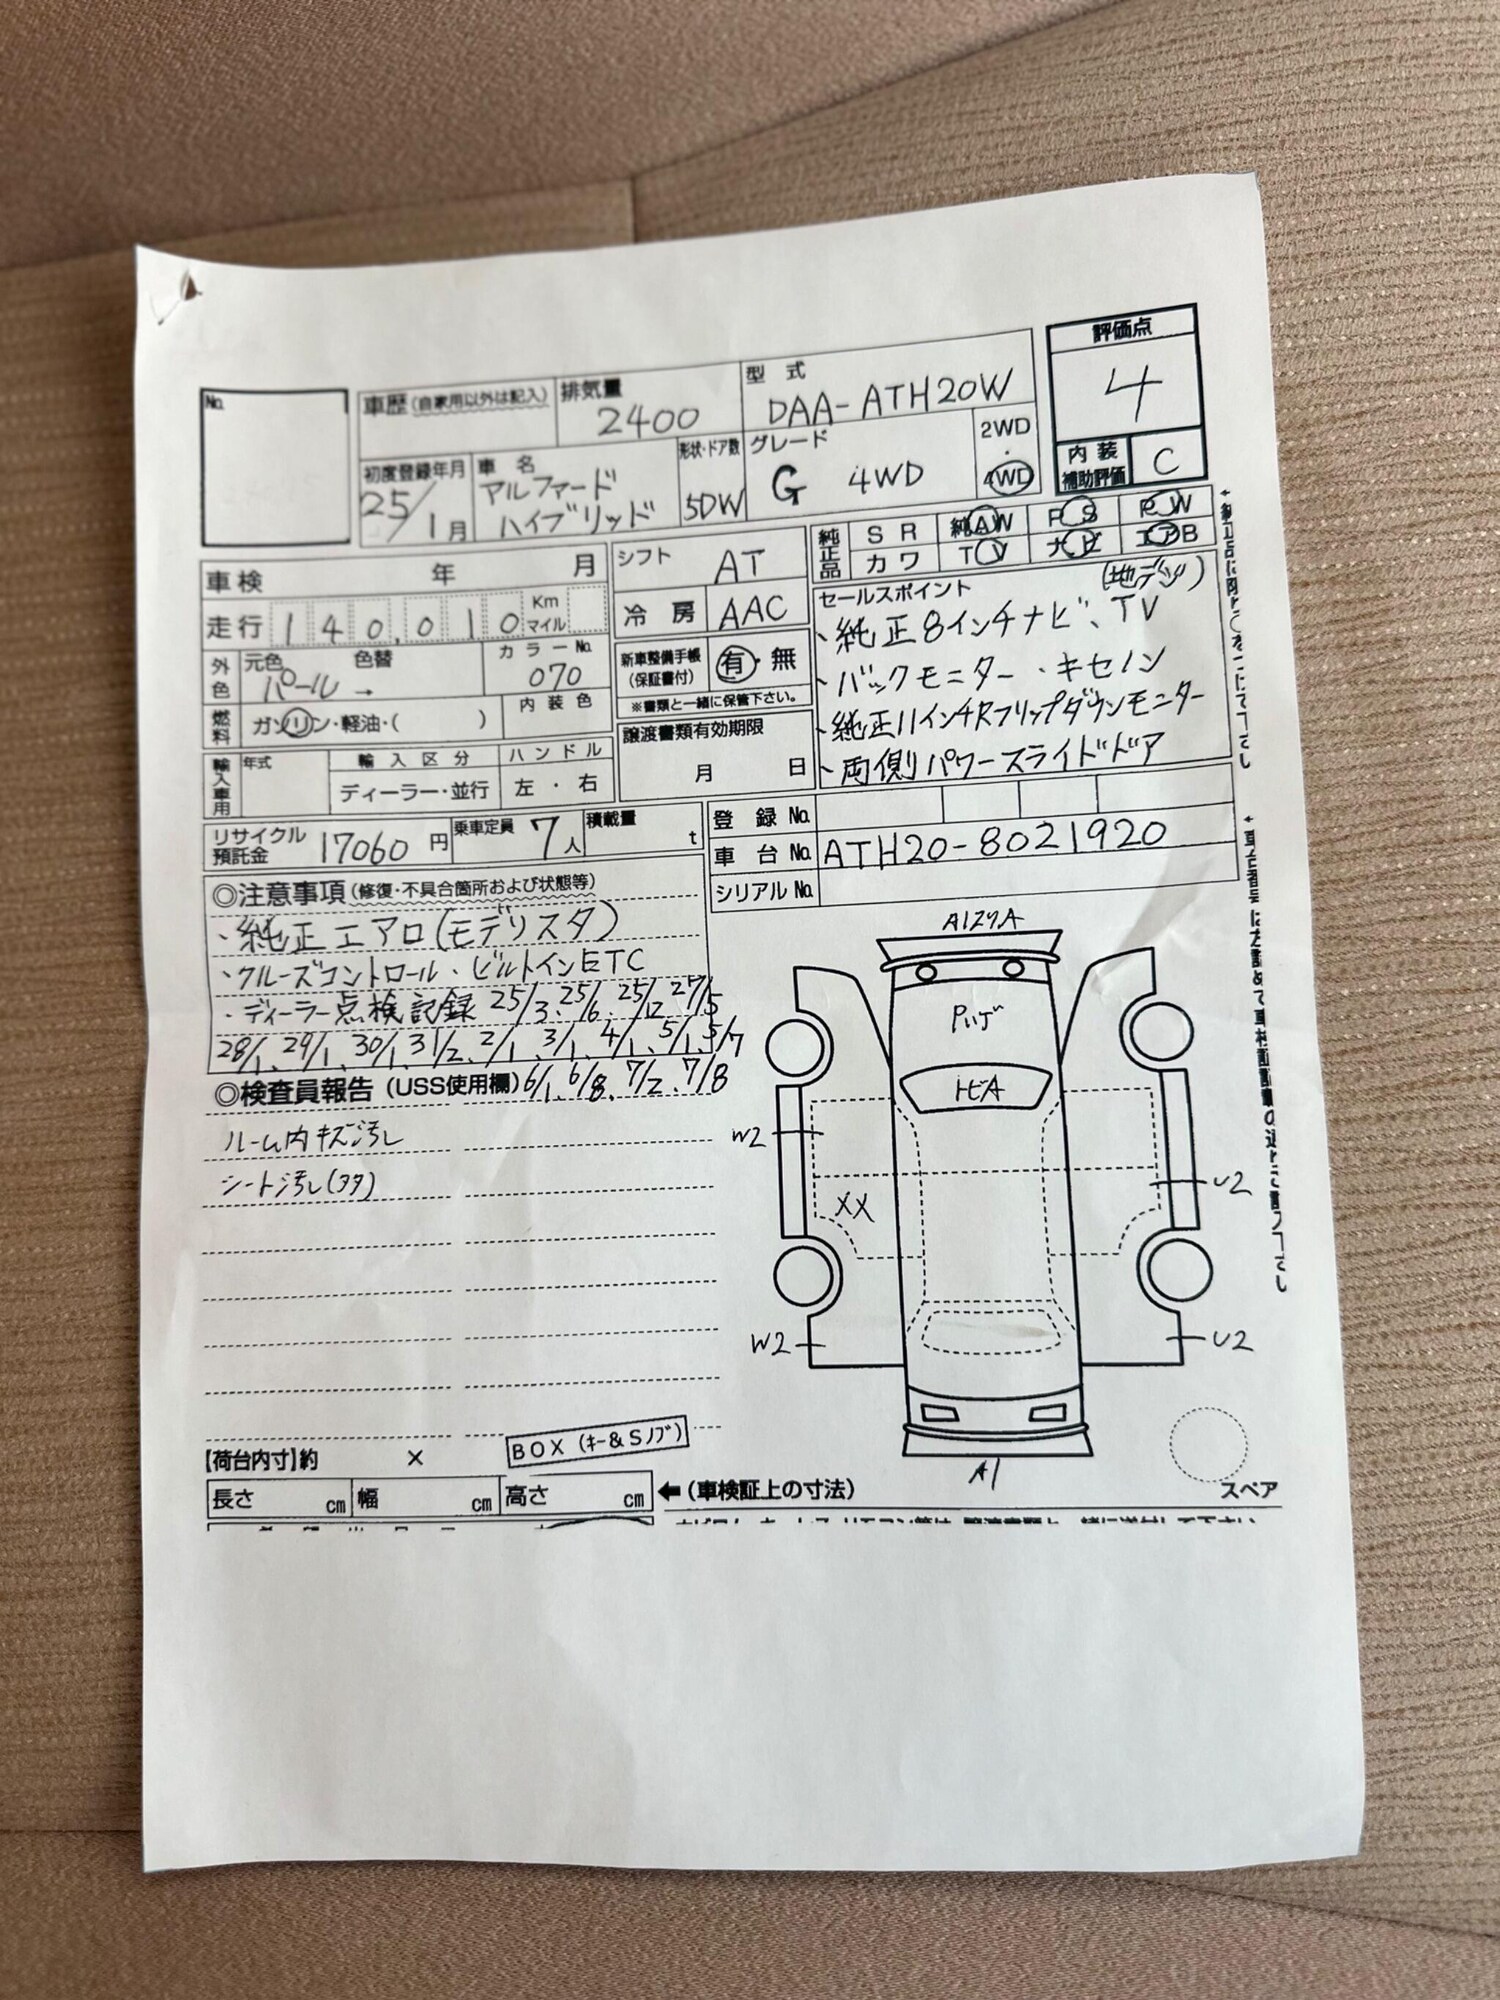 No.
車歴(自家用以外は記入)
排気量
2400
型式
DAA-ATH20W
評価点
4
内装
補助評価
C
初度登録年月
25/1月
車名
アルファード
ハイブリッド
形状・ドア数
5DW
グレード
G 4WD
2WD
・
4WD
車検 年 月
シフト
AT
純正品
SR 純AW PS PW
カワ TV ナビ エアB
走行 140,010 Km
マイル
冷房
AAC
セールスポイント
(地デジ)
・純正8インチナビ、TV
・バックモニター・キセノン
・純正11インチRフリップダウンモニター
・両側パワースライドドア
外色
元色
パール→
色替
カラーNo.
070
新車整備手帳
(保証書付)
有・無
※書類と一緒に保管下さい。
燃料
ガソリン・軽油・( )
内装色
譲渡書類有効期限
月 日
輸入車用
年式
輸入区分
ディーラー・並行
ハンドル
左・右
リサイクル
預託金
17060円
乗車定員
7人
積載量
t
登録No.
車台No. ATH20-8021920
シリアルNo.
◎注意事項(修復・不具合箇所および状態等)
・純正エアロ(モデリスタ)
・クルーズコントロール・ビルトインETC
・ディーラー点検記録 25/3、25/6、25/12、27/5
28/1、29/1、30/1、31/2、2/1、3/1、4/1、5/1、5/7
◎検査員報告(USS使用欄)6/1、6/8、7/2、7/8
ルーム内キズ汚レ
シート汚レ(タタ)
Pハゲ
トビA
W2
XX
U2
W2
U2
A1
スペア
【荷台内寸】約 ×
BOX(キー&Sノブ)
長さ cm 幅 cm 高さ cm
←(車検証上の寸法)